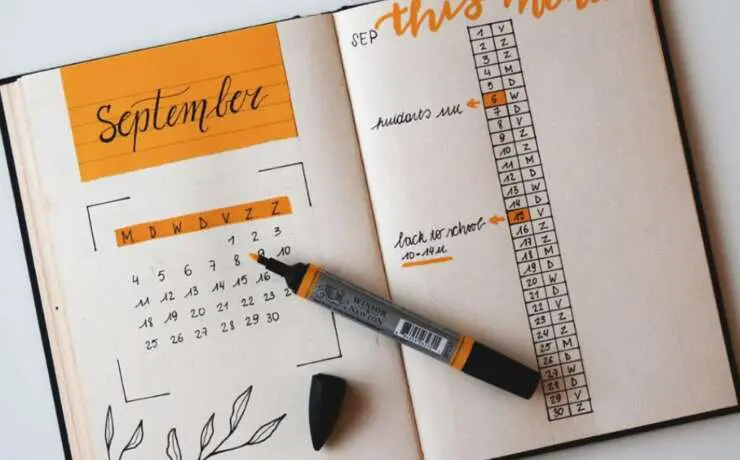 September
M D W D V Z Z
1 2 3
4 5 6 7 8 9 10
11 12 13 14 15 16
18 19 20 21 22 23
25 26 27 28 29 30
WINSOR
& NEWTON
this
SEP
1 V
2 Z
3 Z
4 M
5 D
6 W
huidarts
7 D
8 V
9 Z
10 Z
11 M
12 D
13 W
14 D
15 V
back to school
10-14u
16 Z
17 Z
18 M
19 D
20 W
21 D
22 V
23 Z
24 Z
25 M
26 D
27 W
28 D
29 V
30 Z